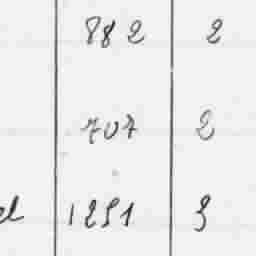 882 2
707 2
el 1251 3